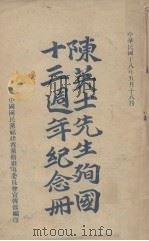 中華民國十八年五月十八日
陳英士先生殉國
十三週年紀念冊
中國國民黨福建省黨務指導委員會宣傳部編印